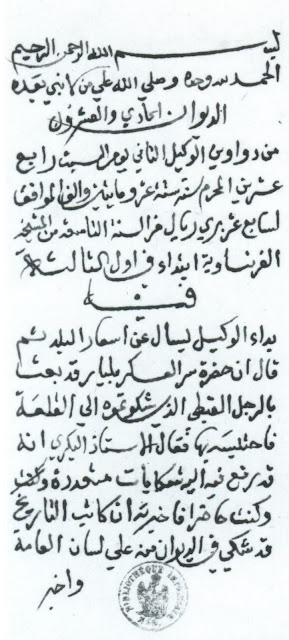 بسم الله الرحمن الرحيم
الحمد لله وحده وصلي الله علي من لا نبي بعده
الديوان الحادي والعشرون
من دواوين الوكيل الثاني يوم السبت رابع
عشرين المحرم سنة ستة عشر ومايتين والف الموافق
لسابع عشر بريريال من السنة التاسعة من المشيخة
الفرنساوية ابتداء في اول الثالثة
بداء الوكيل ليسال عن اسعار البلد ثم
قال ان حضرة سر العسكر بليار قد بعث
بالرجل القبطي الذي شكوتموه الي القلعة
بها فقال الاستاذ البكري انه
قد رفع فيه اليه شكايات متعددة
وكنت حاضرا فاخبرته ان كاتب التاريخ
قد شكي في الديوان منه علي لسان العامة
واخبر
BIBLIOTHÈQUE IMPÉRIALE